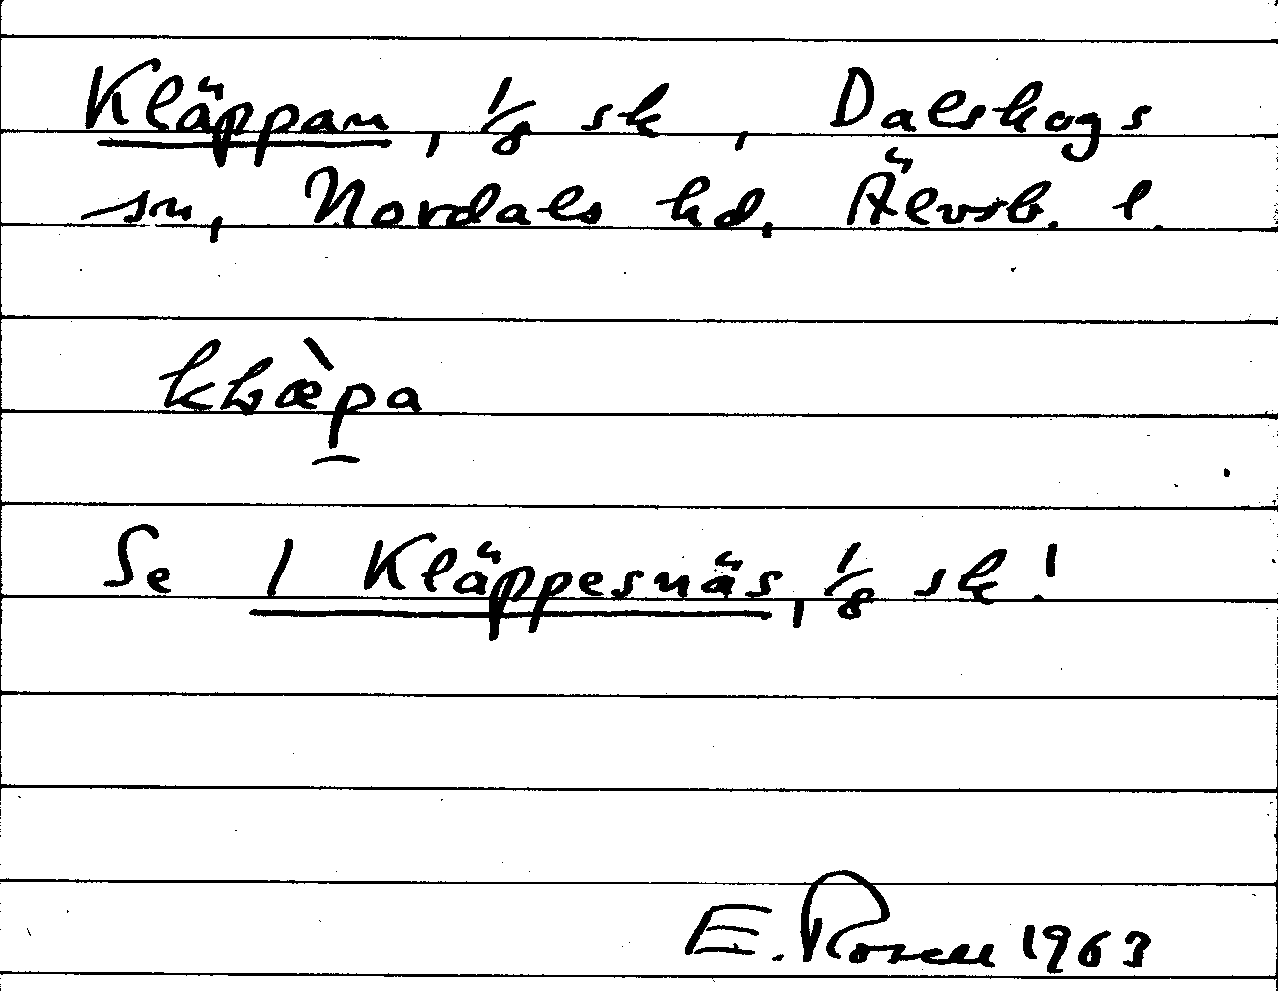 Kläppan, 1/8 sk, Dalskogs
sn, Nordals hd, Älvsb. l.
kḷæ̀p̯a
Se 1 Kläppesnäs, 1/8 sk!
E. Rosell 1963